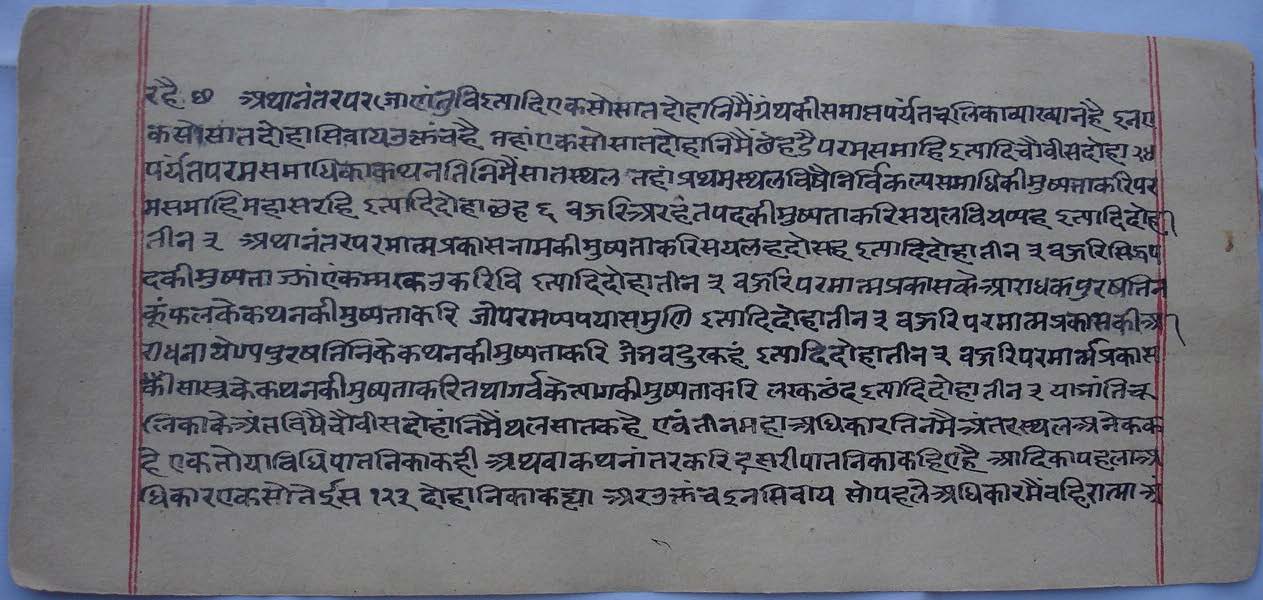 रहै छ अथानंतर पर जाणंतुवि इत्यादि एकसोसात दोहानिमैं ग्रंथकी समाप्तपर्यंत चूलिका व्याख्यान है इन ए
कसोसात दोहा सिवाय उक्तं च है तहां एकसोसात दोहानिमैं देहडै परमसमाहि इत्यादि चौवीस दोहा २४
पर्यंत परमसमाधिका कथन तिनिमैं सातस्थल तहां प्रथमस्थलविषै निर्विकल्पसमाधिकी मुष्यताकरि पर
मसमाहिमहासरहि इत्यादि दोहा छह ६ बऊरि अरहंतपदकी मुष्यताकरि सयलवियप्पह इत्यादि दोहा
तीन ३ अथानंतर परमात्मप्रकासनामकी मुष्यताकरि सयलहदोसह इत्यादि दोहा तीन ३ बऊरि सिद्धप
दकी मुष्यता कम्मरकउकरिवि इत्यादि दोहा तीन ३ बऊरि परमात्मप्रकासके आराधक पुरषतिनि
कूं फलके कथनकी मुष्यताकरि जोपरमप्पपयासमुणि इत्यादि दोहा तीन ३ बऊरि परमात्मप्रकासकी आ
राधना योग्य पुरषतिनिके कथनकी मुष्यताकरि जेभवदुरकहं इत्यादि दोहा तीन ३ बऊरि परमात्मप्रकास
की सास्त्रके कथनकी मुष्यताकरि तथा गर्वके त्यागकी मुष्यताकरि लरकछंद इत्यादि दोहा तीन ३ याभांति चू
लिकाके अंतविषै चौवीस दोहांनिमैं थल सात कहै एवं तीन महा अधिकार तिनमै अंतरस्थल अनेक क
है एक तो याविधि पातनिका कही अथवा कथनांतरकरि दूसरी पातनिका कहिए है आदिका पहला अ
धिकार एकसो तेईस १२३ दोहानिका कह्या अर उक्तं च इन सिवाय सो पहले अधिकारमैं बहिरात्मा अं